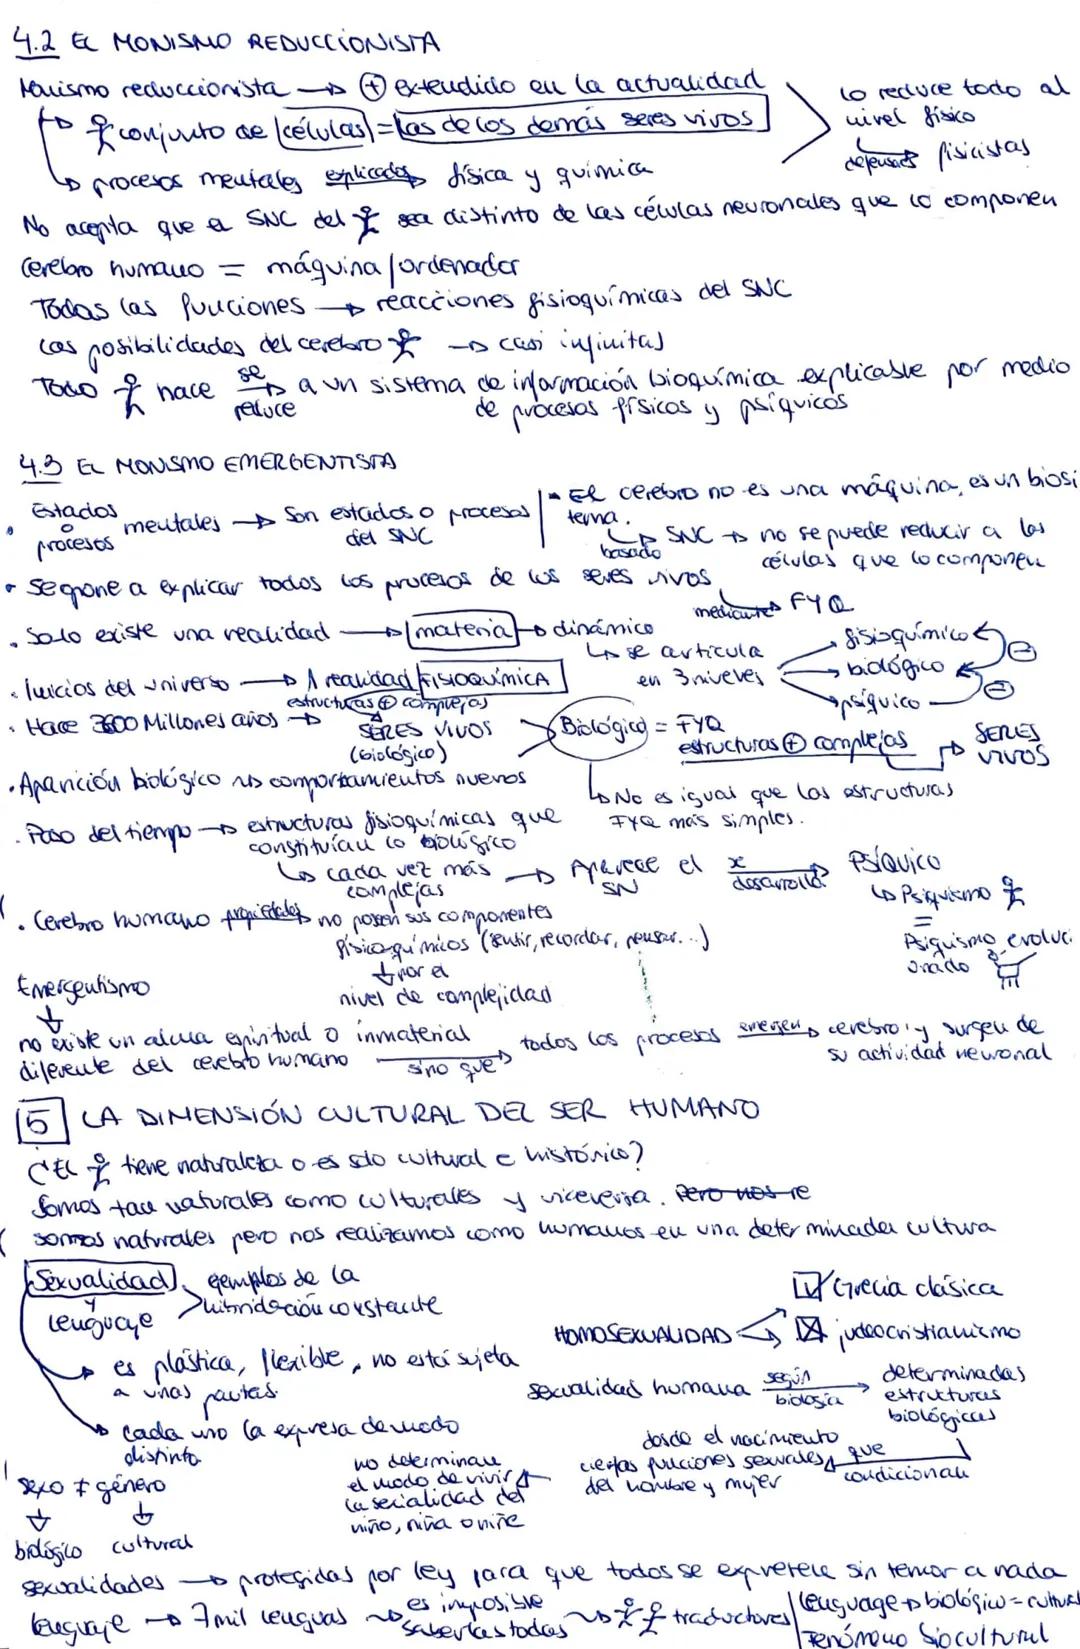 4.2 EL MONISMO REDUCCIONISTA
Monismo reduccionista → (+) extendido en la actualidad
conjunto de células = las de los demás seres vivos
procesos mentales explicados → física y química
lo reduce todo al
nivel físico
defensores → fisicistas
No acepta que el SNC del sea distinto de las células neuronales que lo componen
Cerebro humano = máquina/ordenador
Todas las funciones → reacciones fisioquímicas del SNC
Las posibilidades del cerebro → casi infinitas
Todo hace se reduce → a un sistema de información bioquímica explicable por medio
de procesos físicos y psíquicos
4.3 EL MONISMO EMERGENTISTA
• Estados o procesos mentales → Son estados o procesos
del SNC
• El cerebro no es una máquina, es un biosis
tema.
basado → SNC → no se puede reducir a las
células que lo componen
• Se opone a explicar todos los procesos de los seres vivos
mediante → FYQ
• Solo existe una realidad → materia → dinámico
→ se articula
en 3 niveles
fisioquímico
biológico
psíquico
• Inicios del universo → 1 realidad FISIOQUÍMICA
estructuras (+) complejas
• Hace 3600 Millones años → SERES VIVOS
(biológico)
Biológico = FYQ
estructuras (+) complejas → SERES
VIVOS
→ No es igual que las estructuras
FYQ más simples.
• Aparición biológico → comportamientos nuevos
• Paso del tiempo → estructuras fisioquímicas que
constituían lo biológico
→ cada vez más
complejas
→ Aparece el
SN
se desarrolla → Psíquico
→ Psiquismo
=
Psiquismo evoluci
onado
• Cerebro humano propiedades → no poseen sus componentes
físico-químicos (sentir, recordar, pensar...)
↓ por el
nivel de complejidad
Emergentismo
↓
no existe un alma espiritual o inmaterial
diferente del cerebro humano
sino que →
todos los procesos emergen → cerebro y surgen de
su actividad neuronal
5 LA DIMENSIÓN CULTURAL DEL SER HUMANO
¿El tiene naturaleza o es solo cultural e histórico?
Somos tan naturales como culturales y viceversa. Pero nos re
somos naturales pero nos realizamos como humanos en una determinada cultura
Sexualidad
y
lenguaje
ejemplos de la
hibridación constante
HOMOSEXUALIDAD
Grecia clásica
judeocristianismo
→ es plástica, flexible, no está sujeta
a unas pautas
→ cada uno la expresa de modo
distinto
sexualidad humana según biología → determinadas
estructuras
biológicas
que condicionan
desde el nacimiento
ciertas funciones sexuales
del hombre y mujer
no determinan
el modo de vivir
la sexualidad del
niño, niña o niñe
sexo ≠ género
↓ ↓
biológico cultural
sexualidades → protegidas por ley para que todos se expresen sin temor a nada
lenguaje → 7 mil lenguas → es imposible
saberlas todas → traductores
Lenguaje → biológico = cultural
Fenómeno biocultural